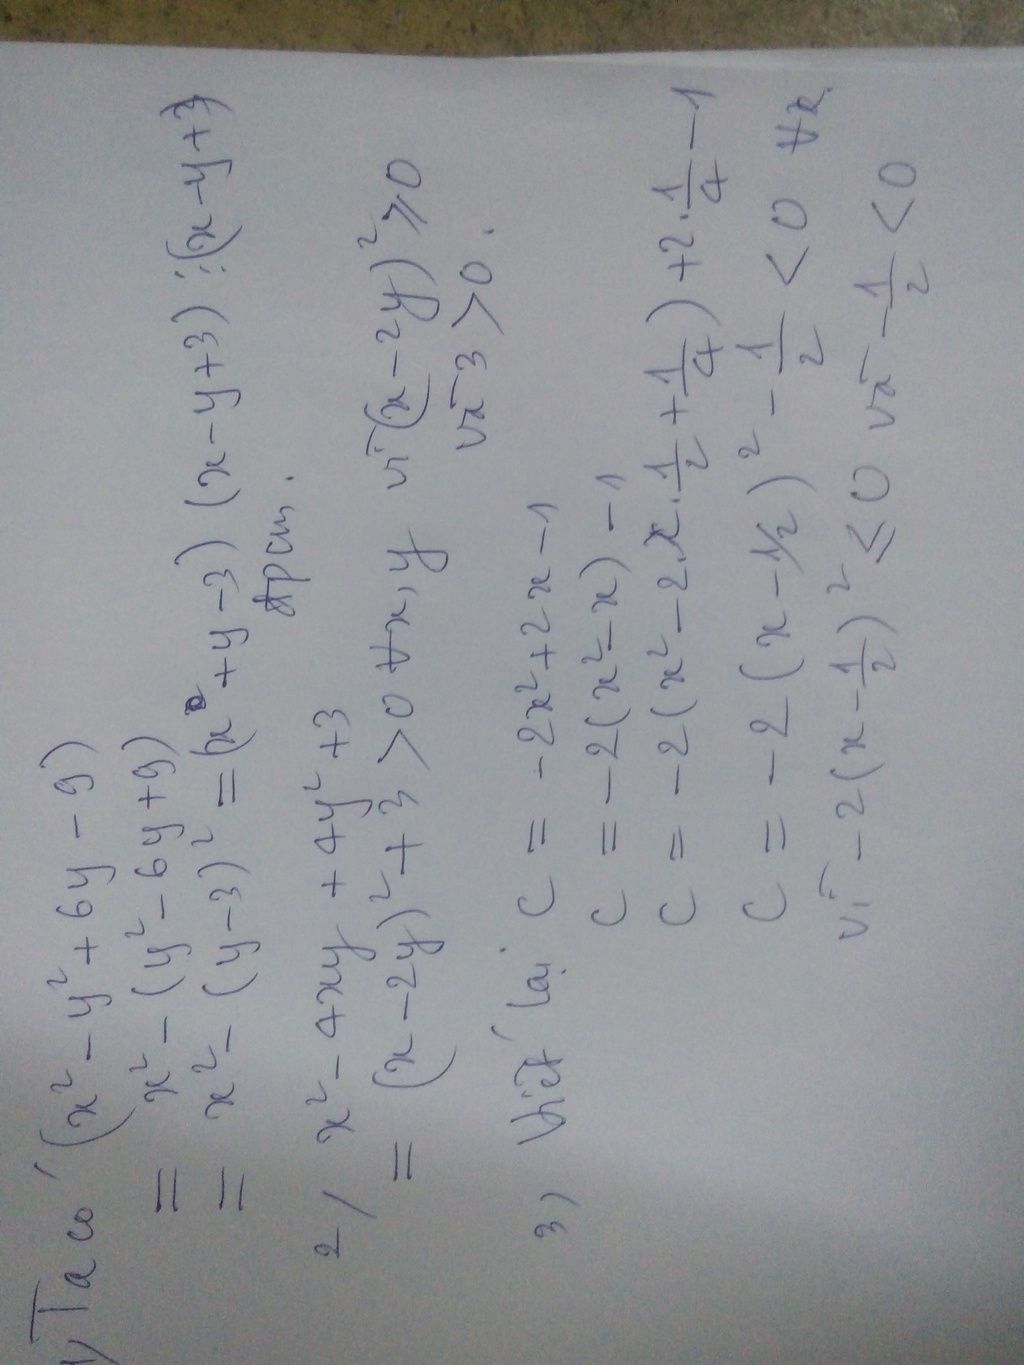 1/ Ta có (x² - y² + 6y - 9)
= x² - (y² - 6y + 9)
= x² - (y - 3)² = (x + y - 3) (x - y + 3) ⋮ (x - y + 3)
đpcm.
2/ x² - 4xy + 4y² + 3
= (x - 2y)² + 3 > 0 ∀x, y vì (x - 2y)² ≥ 0
và 3 > 0.
3) Viết lại C = -2x² + 2x - 1
C = -2(x² - x) - 1
C = -2(x² - 2.x.1/2 + 1/4) + 2.1/4 - 1
C = -2(x - 1/2)² - 1/2 < 0 ∀x.
vì -2(x - 1/2)² ≤ 0 và -1/2 < 0